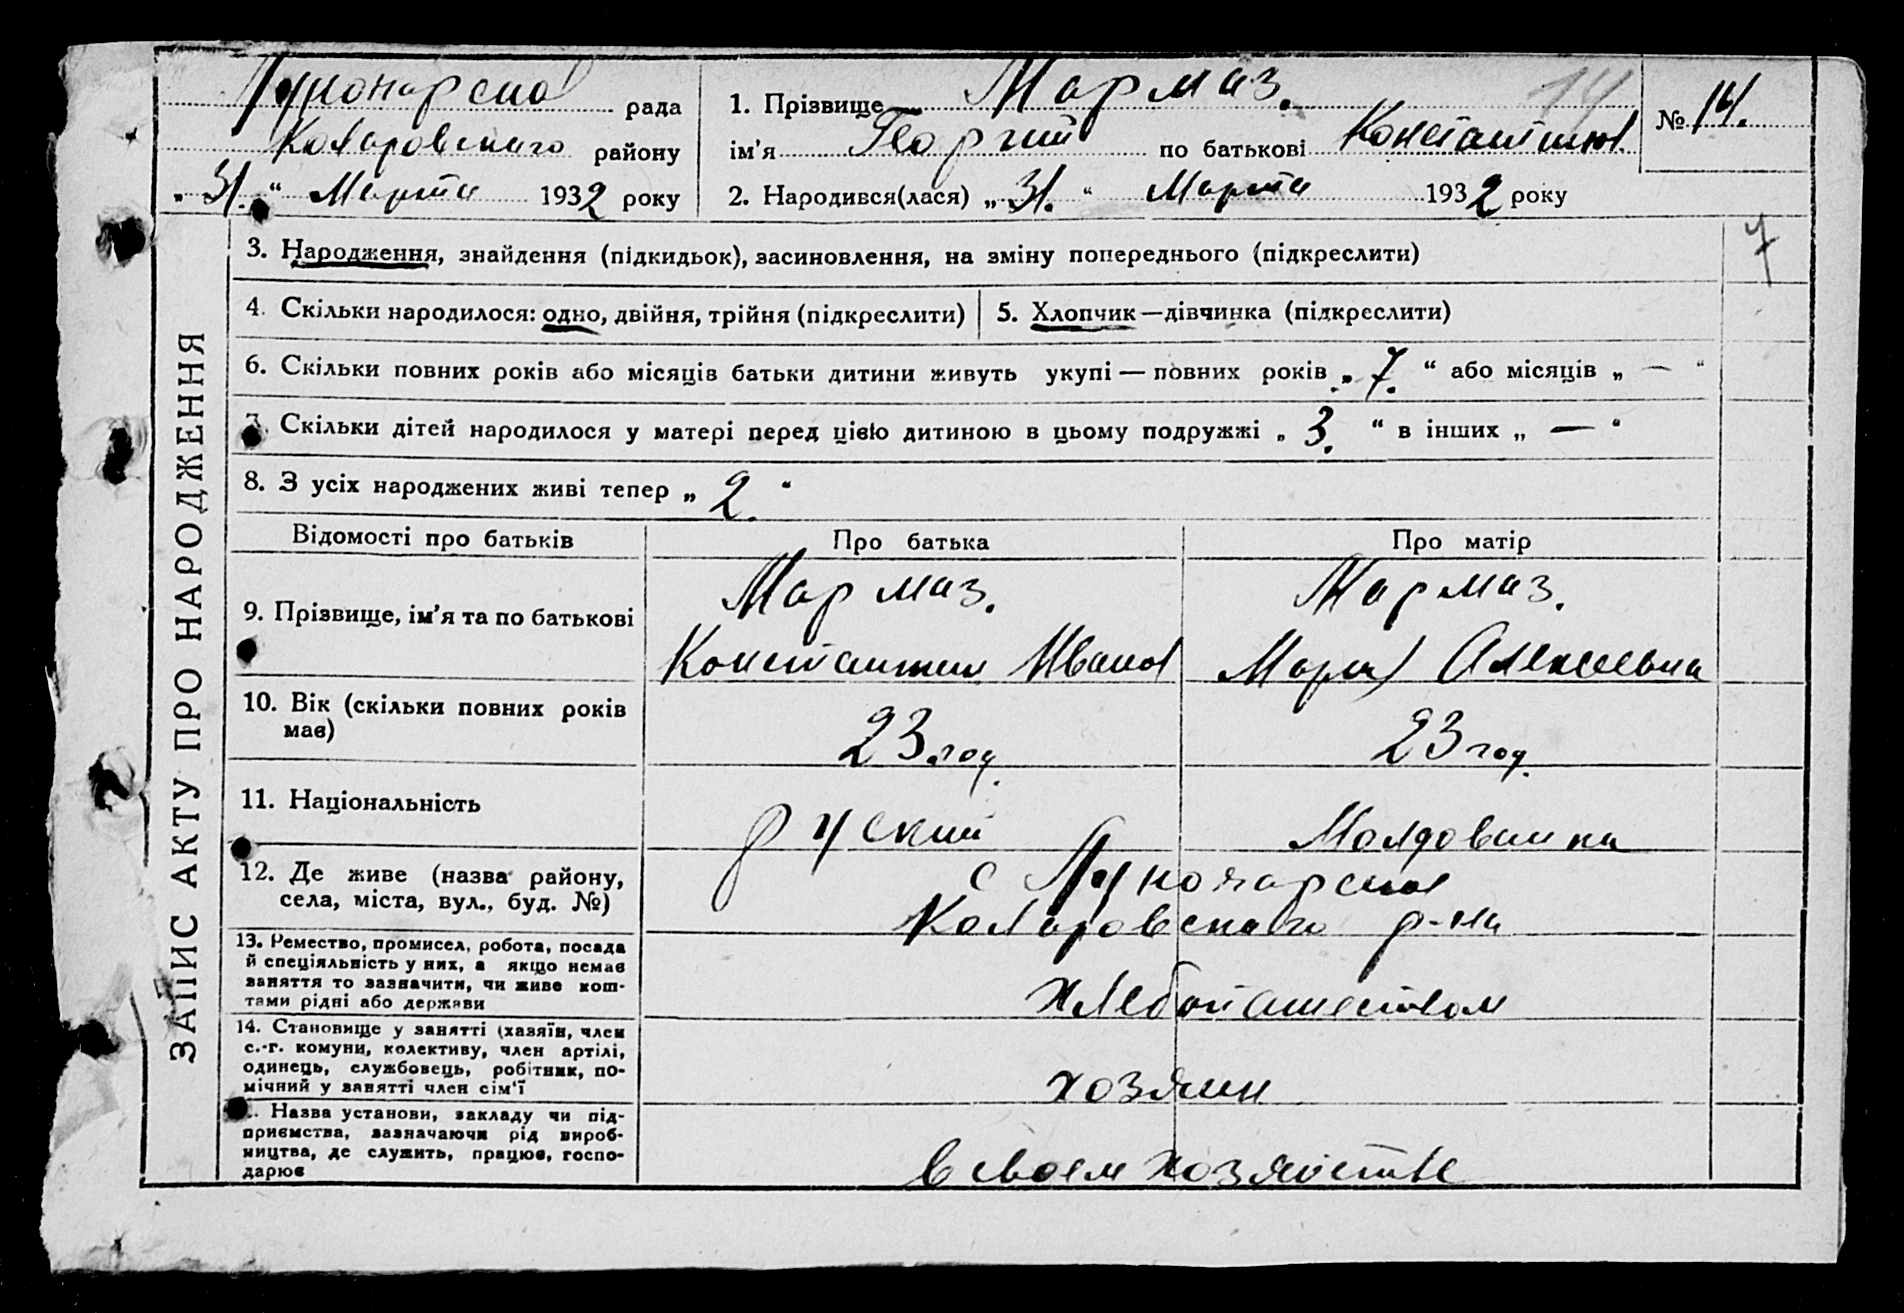 Луночарско рада
Коларовскаго району
„ 31. “ Марта 1932 року
1. Прізвище Мармаз.
ім'я Георгий по батькові Константинов
2. Народився(лася) „ 31. “ Марта 1932 року
14
№ 14.
7
ЗАПИС АКТУ ПРО НАРОДЖЕННЯ
3. Народження, знайдення (підкидьок), засиновлення, на зміну попереднього (підкреслити)
4. Скільки народилося: одно, двійня, трійня (підкреслити)
5. Хлопчик—дівчинка (підкреслити)
6. Скільки повних років або місяців батьки дитини живуть укупі — повних років „ 7. “ або місяців „ — “
7. Скільки дітей народилося у матері перед цією дитиною в цьому подружжі „ 3. “ в інших „ — “
8. З усіх народжених живі тепер „ 2. “
Відомості про батьків
Про батька
Про матір
9. Прізвище, ім'я та по батькові
Мармаз.
Константин Иванов
Мармаз.
Мария Алексеевна
10. Вік (скільки повних років
має)
23 год.
23 год.
11. Національність
руский
Молдованка
12. Де живе (назва району,
села, міста, вул., буд. №)
с Луночарское
Коларовскаго р-на
13. Ремество, промисел, робота, посада
й спеціяльність у них, а якщо немає
заняття то зазначити, чи живе кош-
тами рідні або держави
хлебопашеством
14. Становище у занятті (хазяїн, член
с.-г. комуни, колективу, член артілі,
одинець, службовець, робітник, по-
мічний у занятті член сім'ї
хозяин
. Назва установи, закладу чи під-
приємства, зазначаючи рід вироб-
ництва, де служить, працює, госпо-
дарює
в своем хозяйстве